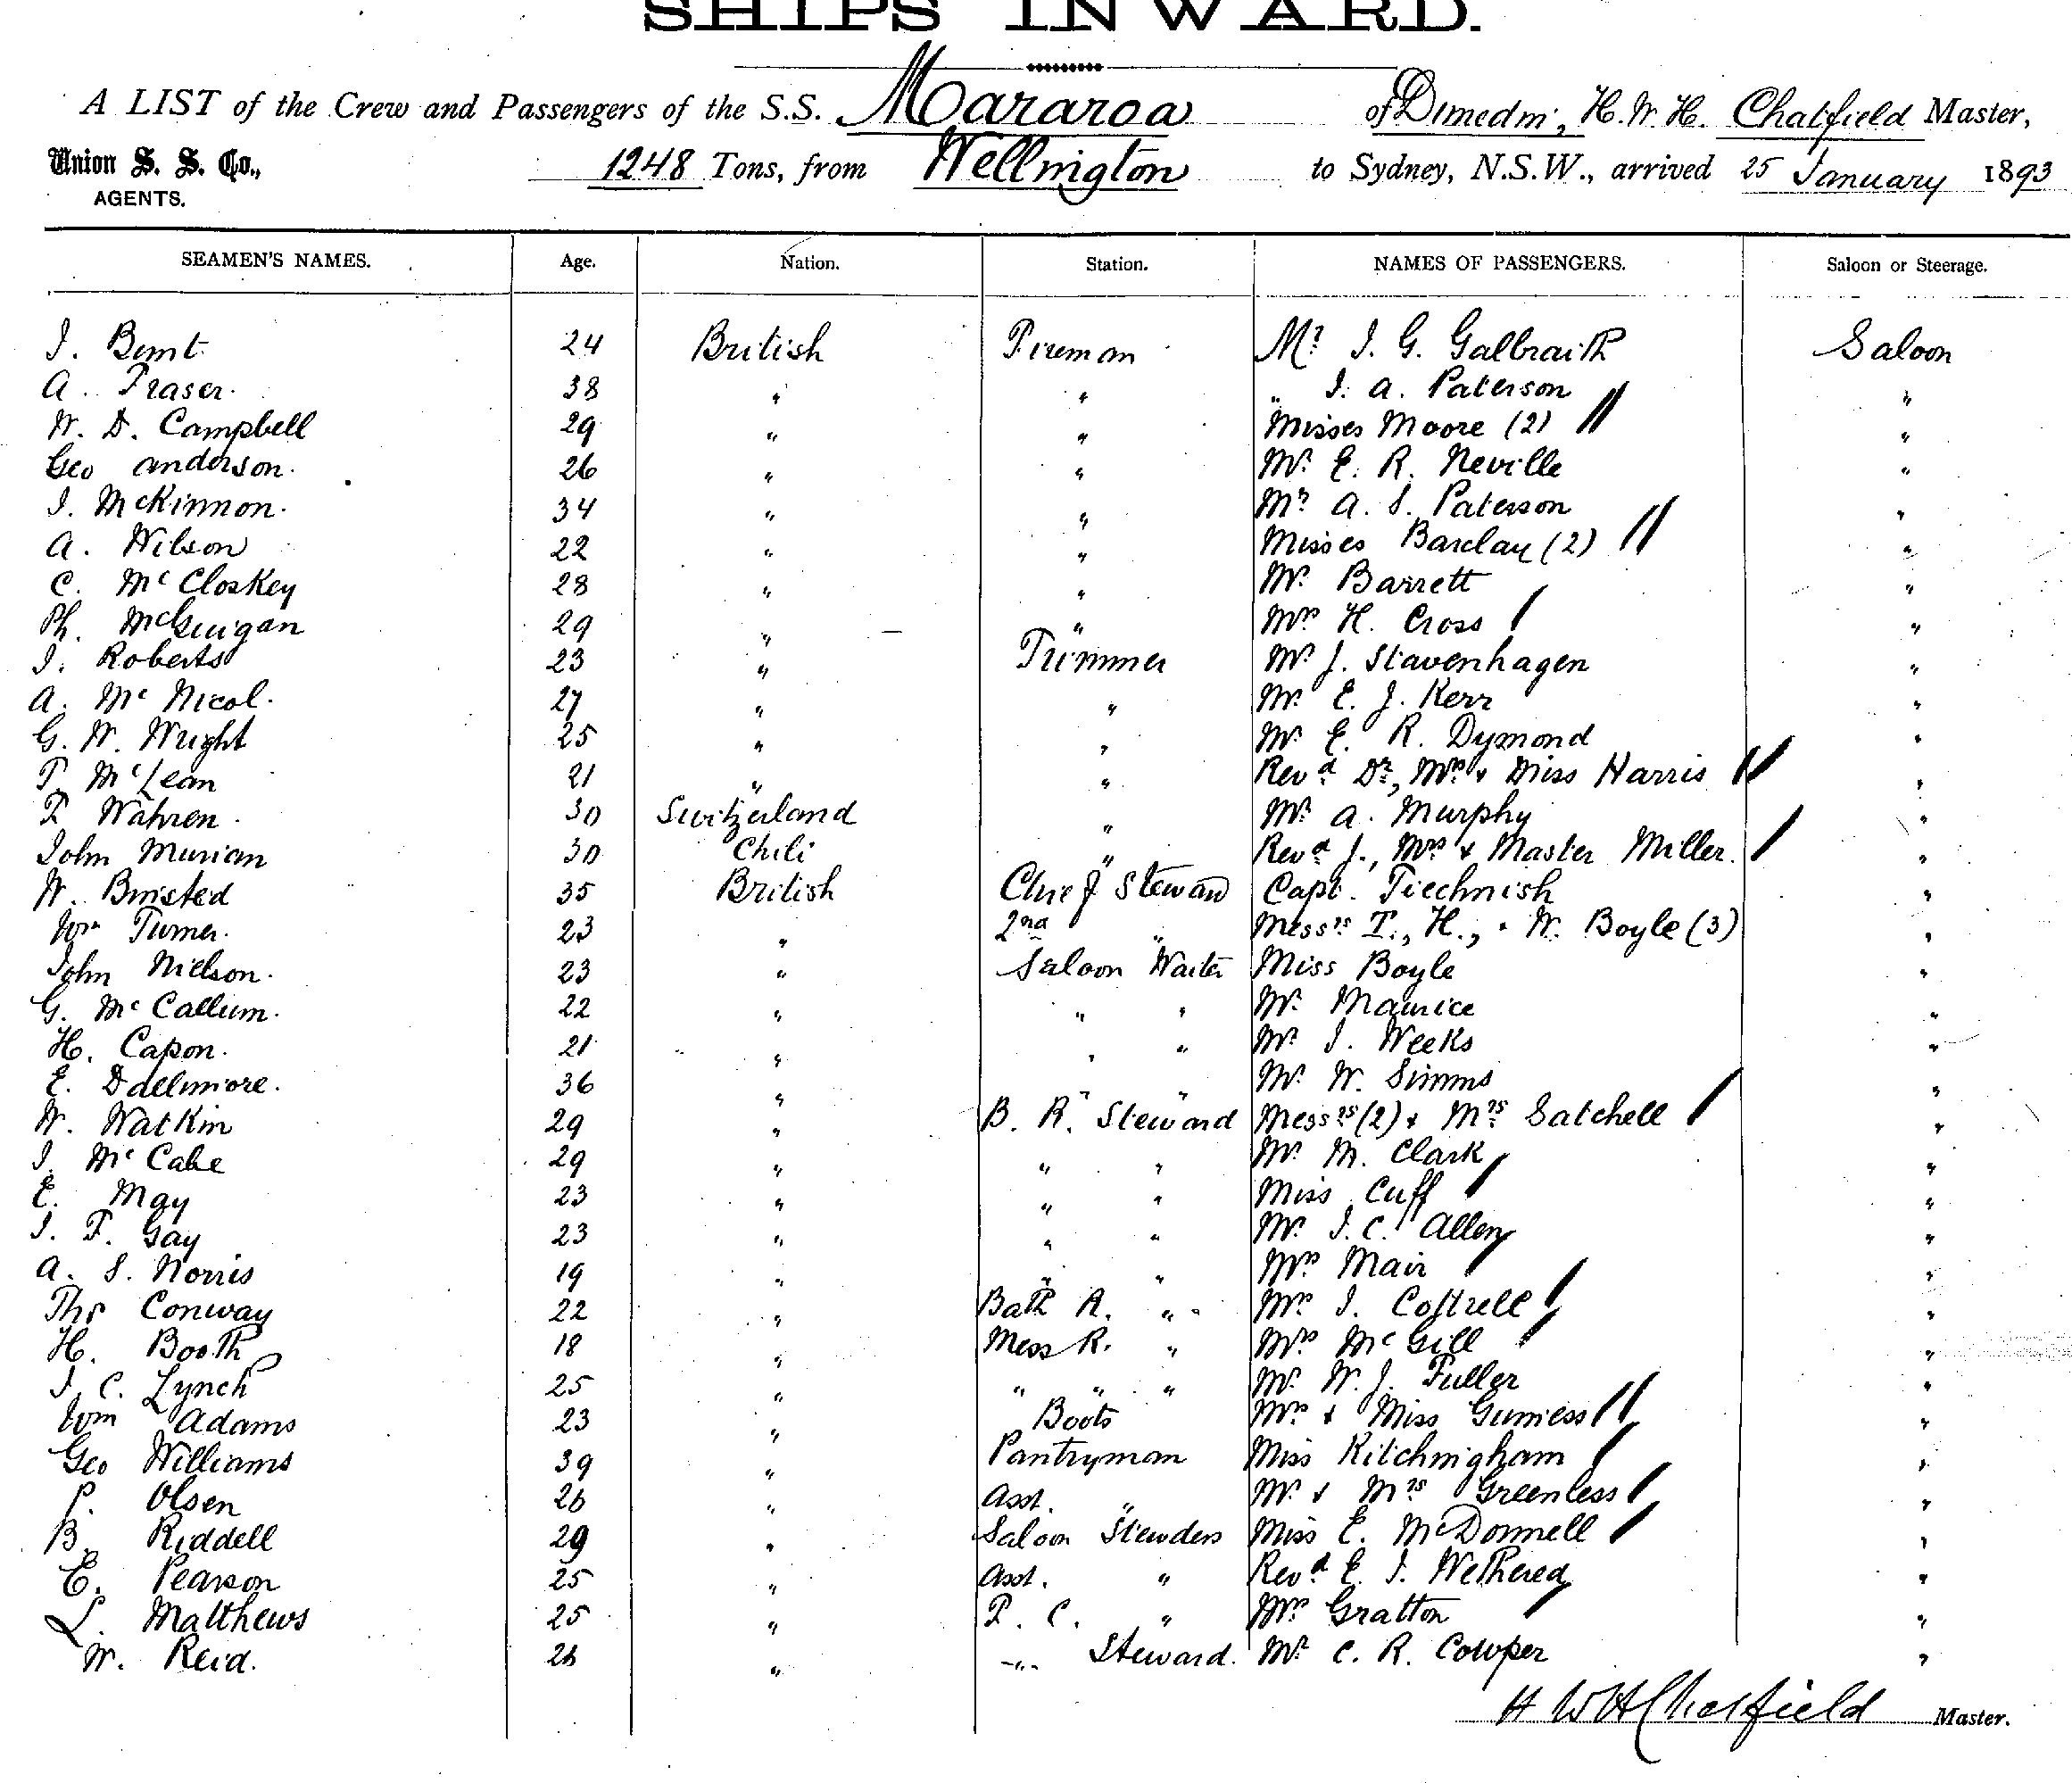 SHIPS INWARD.
A LIST of the Crew and Passengers of the S.S. Mararoa of Dunedin, H. W. H. Chatfield Master,
Union S. S. Co., 1248 Tons, from Wellington to Sydney, N.S.W., arrived 25 January 1893
AGENTS.
SEAMEN'S NAMES. Age. Nation. Station. NAMES OF PASSENGERS. Saloon or Steerage.
J. 24 British Fireman Mr J. G. Galbraith Saloon
A. Fraser. 38 " " " J. A. Paterson "
W. D. Campbell 29 " " Misses Moore (2) "
Geo Anderson. 26 " " Mr. E. R. Neville "
J. McKinnon. 34 " " Mr A. S. Paterson "
A. Wilson 22 " " Misses Barclay (2) "
C. McCloskey 28 " " Mr. Barrett "
Ph. McGuigan 29 " " Mrs H. Cross "
J. Roberts 23 " Trimmer Mr J. Stavenhagen "
A. McNicol. 27 " " Mr. E. J. Kerr "
G. W. Wright 25 " " Mr E. R. Dymond "
McLean 21 " " Revd Dr, Mrs & Miss Harris "
F Wahren. 30 Switzerland " Mr. A. Murphy "
John Murian 30 Chili " Revd J., Mrs & Master Miller. "
W. Binsted 35 British Chief Steward Capt. "
Wm Turner. 23 " 2nd " Messrs T., H., & W. Boyle (3) "
John Nielson. 23 " Saloon Waiter Miss Boyle "
G. McCallum. 22 " " " Mr. Maurice "
H. Capon. 21 " " " Mr. J. Weeks "
E. Dallimore. 36 " " " Mr. W. Simms "
W. Watkin 29 " B. R. Steward Messrs (2) & Mrs Satchell "
J. McCabe 29 " " " Mr. M. Clark "
E. May 23 " " " Miss Cuff "
J. F. Gay 23 " " " Mr. J. C. Allen "
A. S. Norris 19 " " " Mrs Mair "
Thos Conway 22 " Bath R. " Mrs J. Cottrell "
H. Booth 18 " Mess R. " Mrs McGill "
J. C. Lynch 25 " " " " Mr. W. J. Fuller "
Wm Adams 23 " Boots Mrs & Miss Guiness "
Geo Williams 39 " Pantryman Miss Kitchingham "
P. Olsen 26 " Asst. " Mr & Mrs Greenless "
B. Riddell 29 " Saloon Stewdess Miss E. McDonnell "
E. Pearson 25 " Asst. " Revd E. J. Wethered "
L. Matthews 25 " F. C. " Mrs Gratton "
W. Reid. 26 " -"- Steward. Mr C. R. Cowper "
H W H Chatfield Master.